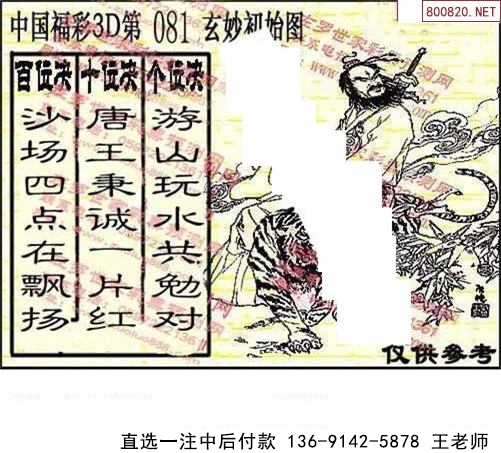 800820.NET
中国福彩3D第 081 玄妙初始图
百位诀 十位诀 个位诀
沙场四点在飘扬
唐王秉诚一片红
游山玩水共勉对
仅供参考
直选一注中后付款 136-9142-5878 王老师